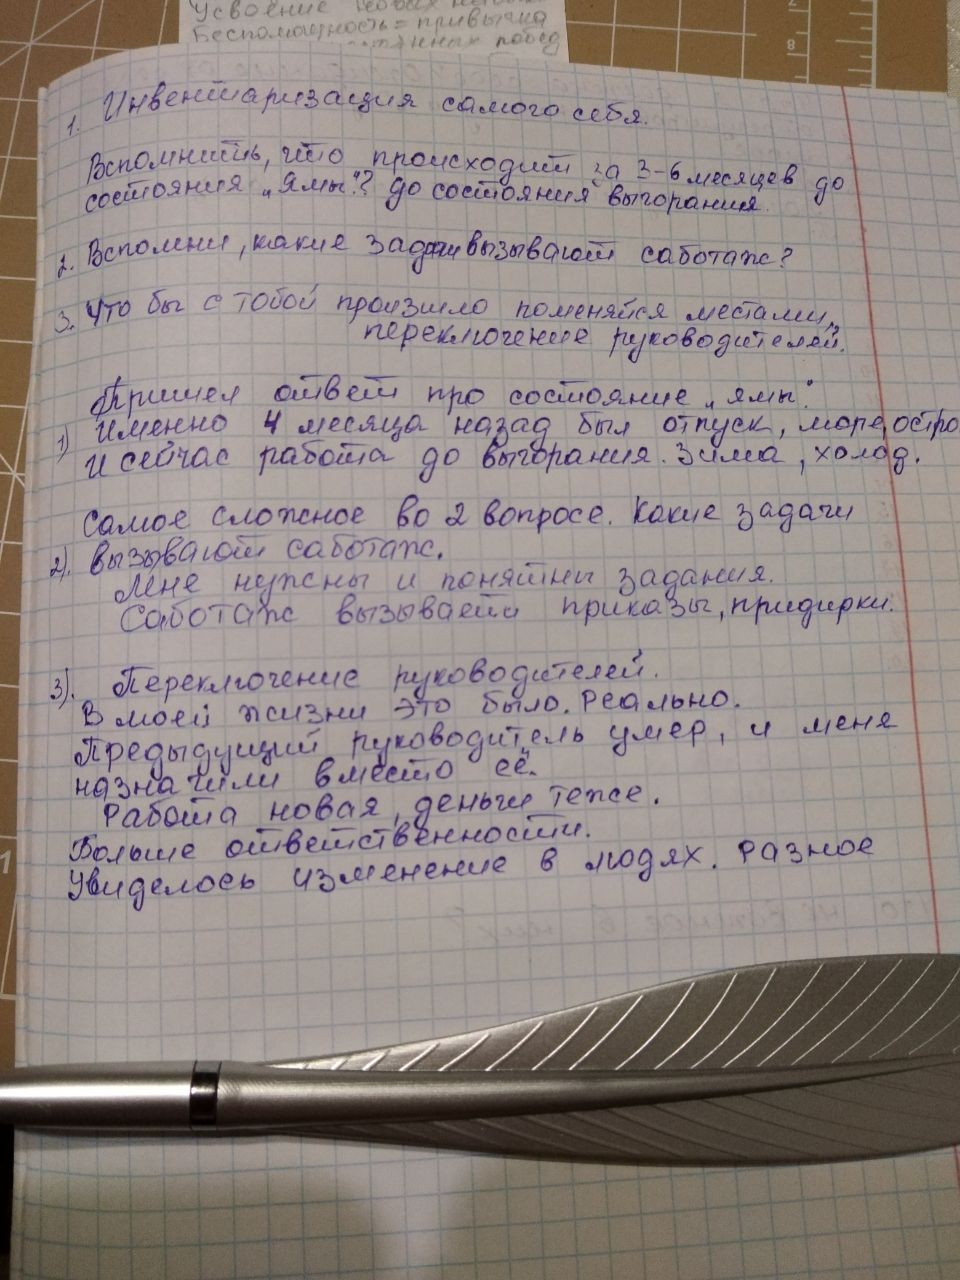 Усвоение новых
Беспомощность = привычка
побед
1. Инвентаризация самого себя.
Вспомнить, что происходит за 3-6 месяцев до
состояния „Ямы"? до состояния выгорания.
2. Вспомни, какие задачи вызывают саботаж?
3. Что бы с тобой произшло поменяйся местами,
переключение руководителей.
Пришел ответ про состояние „ямы".
1) Именно 4 месяца назад был отпуск, море, остро
И сейчас работа до выгорания. Зима, холод.
Самое сложное во 2 вопросе. Какие задачи
2). вызывают саботаж.
Мне нужны и понятны задания.
Саботаж вызывает приказы, придирки.
3). Переключение руководителей.
В моей жизни это было. Реально.
Предыдущий руководитель умер, и меня
назначили вместо её.
Работа новая, деньги теже.
Больше ответственности.
Увиделось изменение в людях. Разное
8
2
1